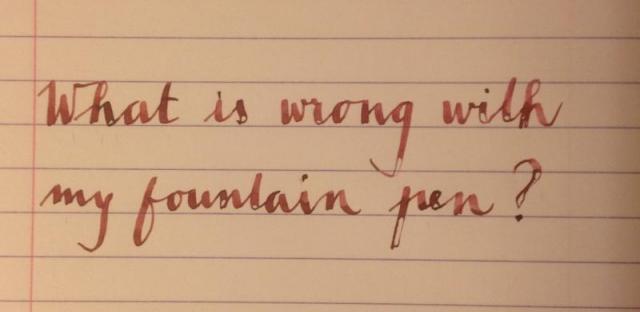 What is wrong with
my fountain pen?